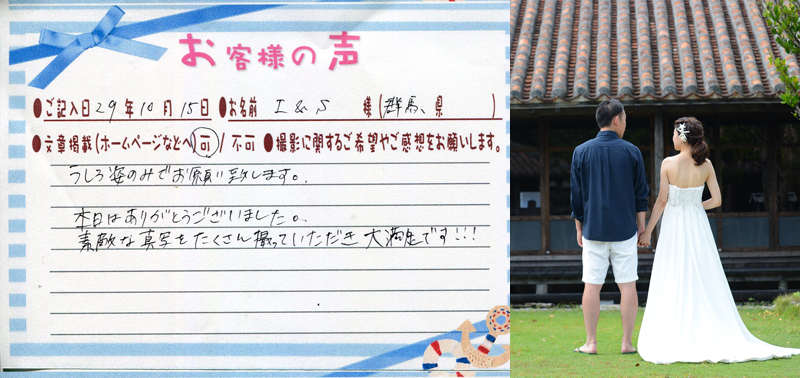 お客様の声
●ご記入日 29年 10月 15日 ●お名前 I & S 様 (群馬、県 )
●文章掲載(ホームページなどへ 可 / 不可 ●撮影に関するご希望やご感想をお願いします。
うしろ姿のみでお願い致します。
本日はありがとうございました。
素敵な真写をたくさん撮っていただき大満足です!!!